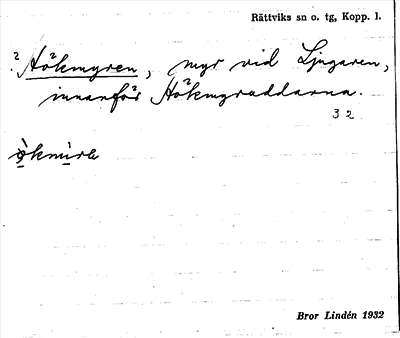 Rättviks sn o. tg, Kopp. l.
? Hökmyren, myr vid Ljugaren,
innanför Hökmyruddarna.
32
ö̀kmùre
Bror Lindén 1932